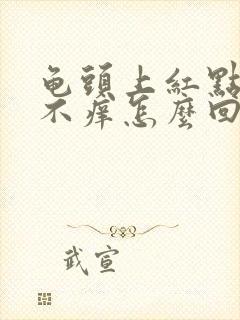 龟頭上紅點
不痒怎麼回
武宣